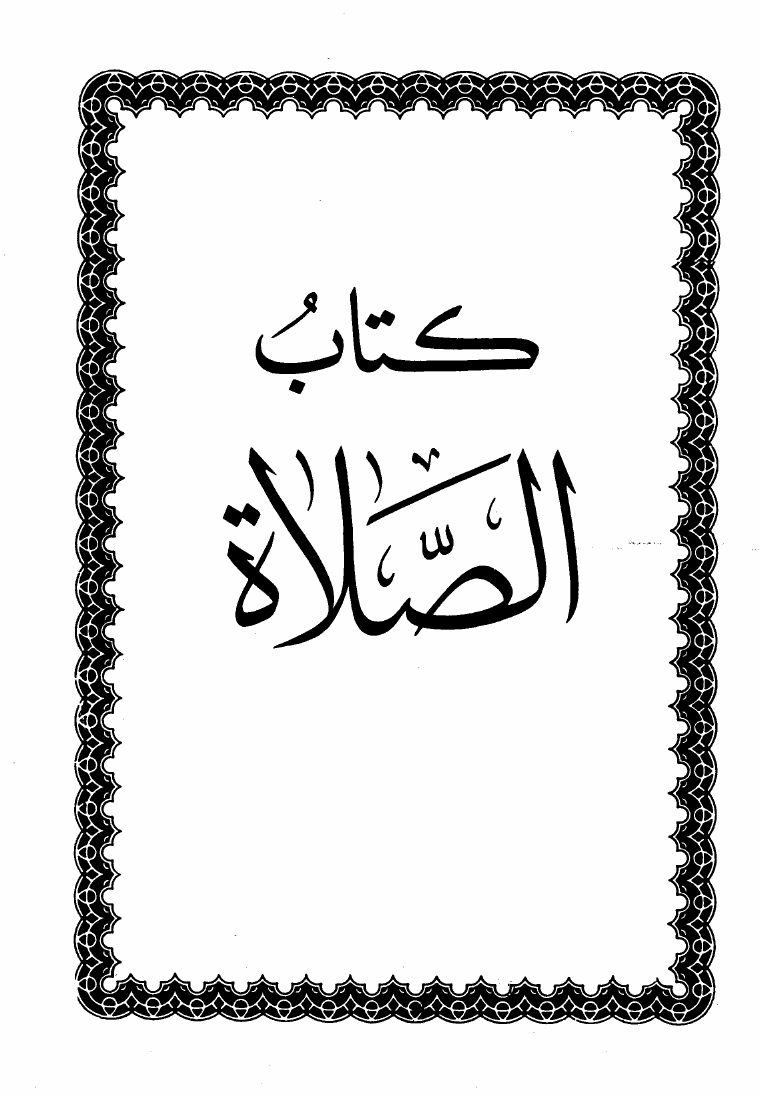 كتابُ
الصَّلاة